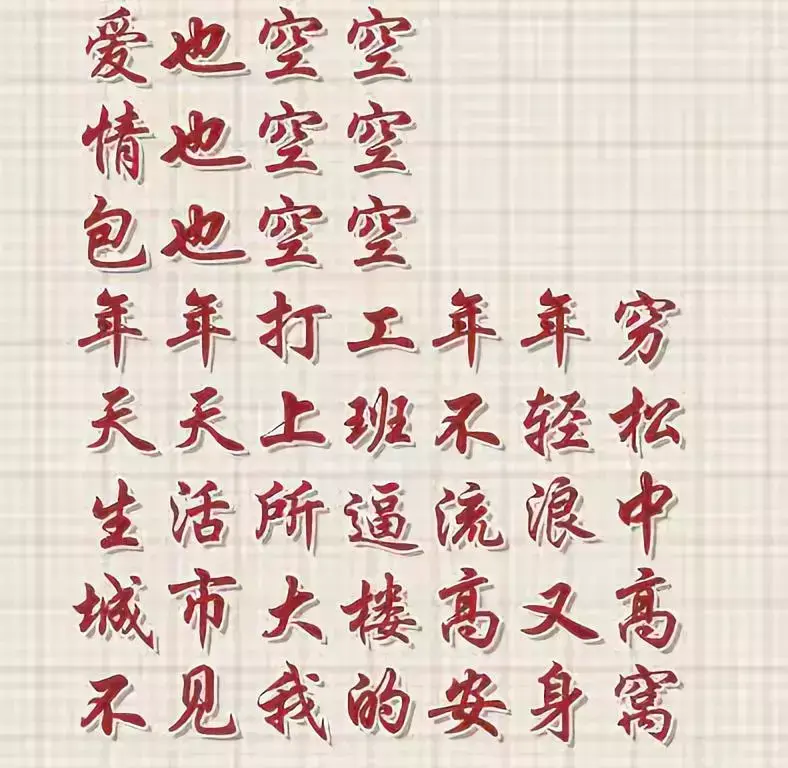 爱也空空
情也空空
包也空空
年年打工年年穷
天天上班不轻松
生活所逼流浪中
城市大楼高又高
不见我的安身窝